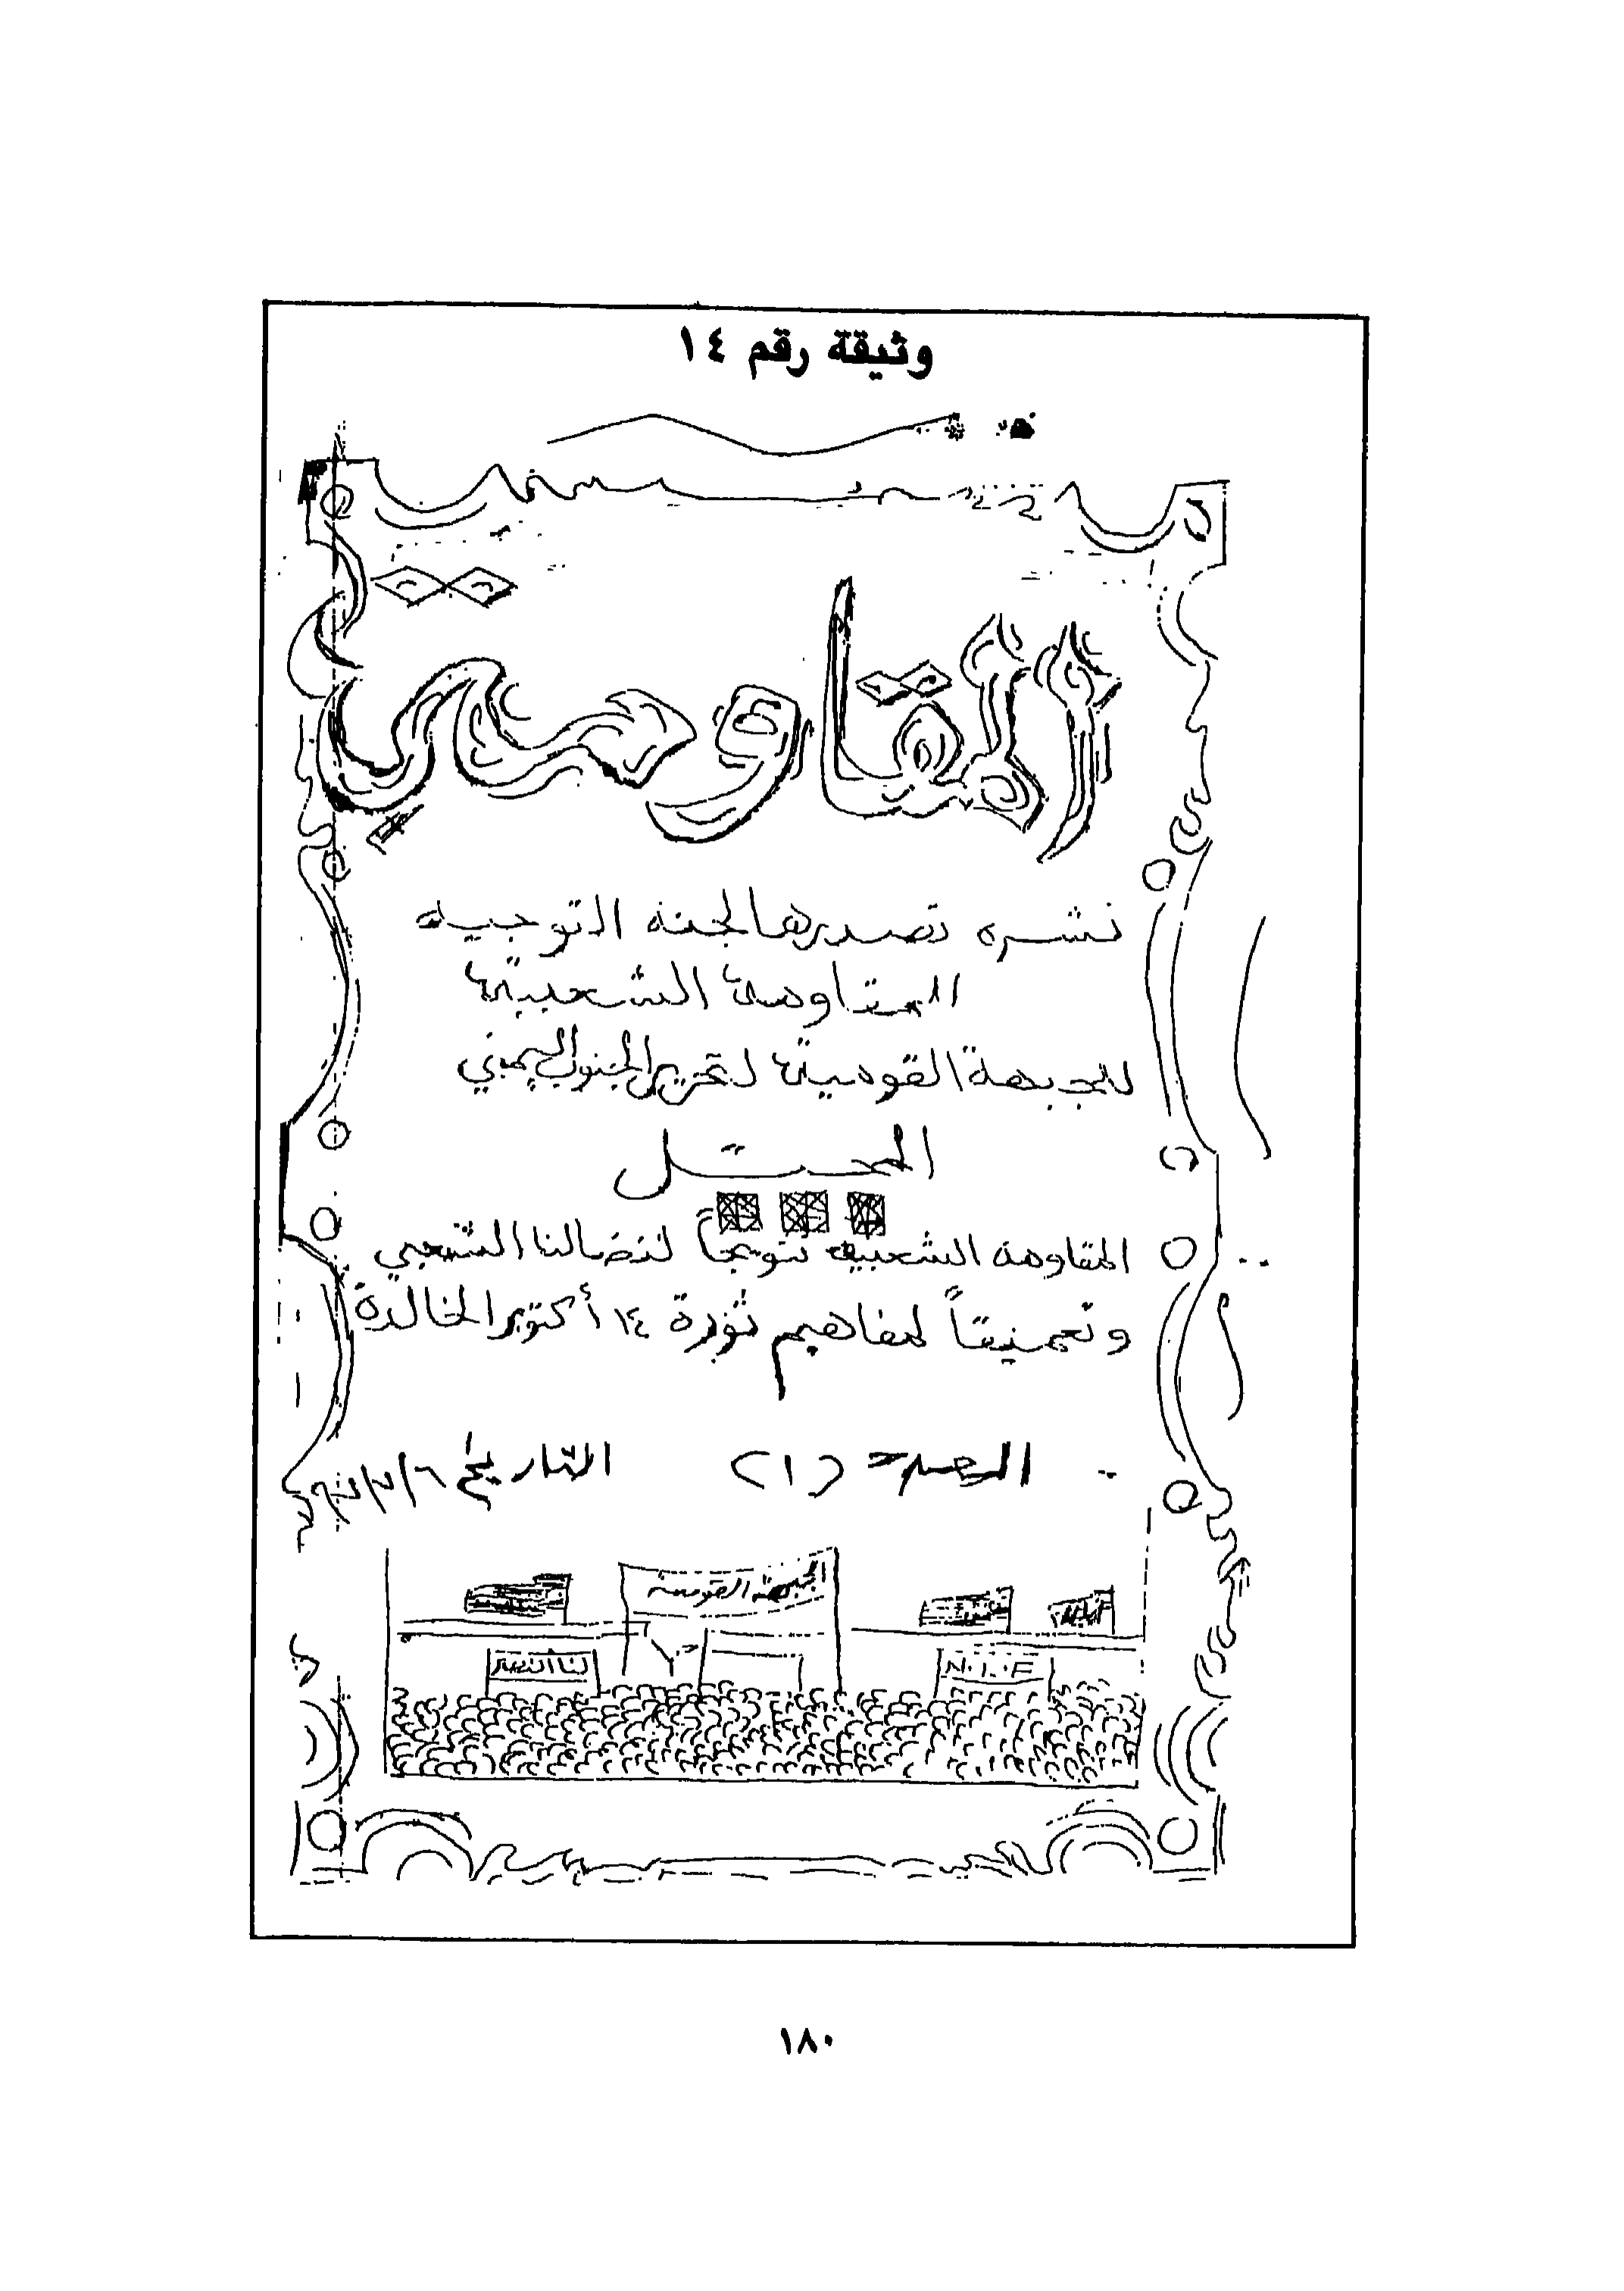 وثيقة رقم ١٤
المقاومة
نشره تصدرها لجنة التوجيه
المقاومة الشعبية
للجبهة القومية لتحرير الجنوب اليمني
المحتل
المقاومة الشعبية تتويجاً لنضالنا الشعبي
وتعميقاً لمفاهيم ثورة ١٤ أكتوبر الخالدة
العدد (١) التاريخ
الجبهة القومية
لنا النصر
N.L.F
١٨٠